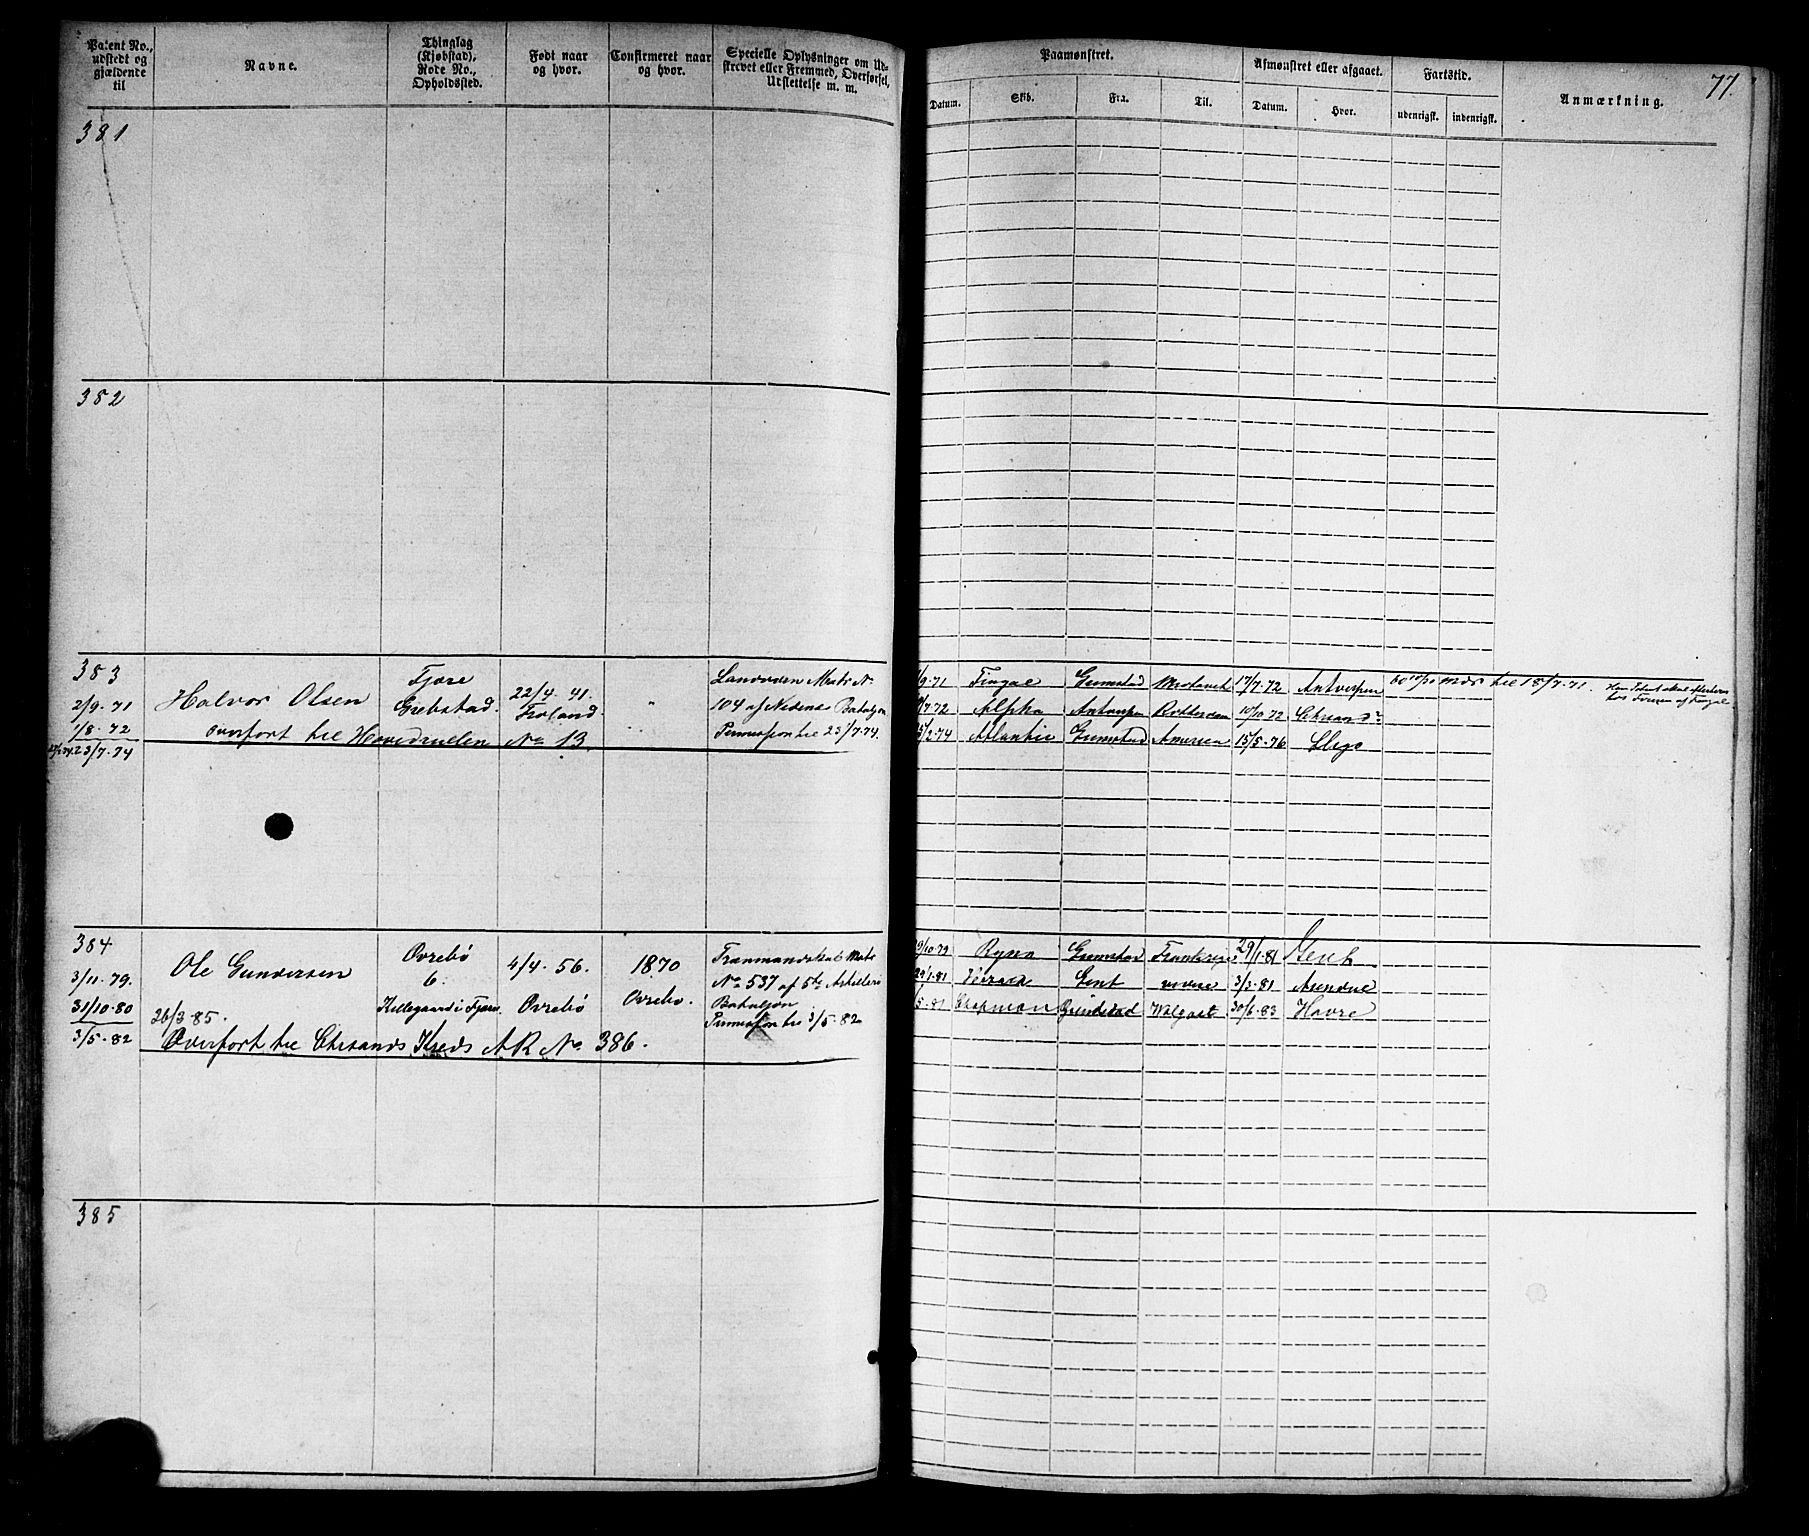 77.
Patent No., udstedt og gjældende til
Navne.
Thinglag (Kjøbstad), Rode No., Opholdssted.
Født naar og hvor.
Confirmeret naar og hvor.
Specielle Oplysninger om Udskrevet eller Fremmed, Overførsel, Udslettelse m. m.
Paamønstret.
Afmønstret eller afgaaet.
Fartstid.
Anmærkning.
Datum.
Skib.
Fra.
Til.
Datum.
Hvor.
udenrigsk.
indenrigsk.
381
382
383
2/9. 71
1/8. 72
23/7. 74
Halvor Olsen
Fjære
Grebstad.
22/4. 41.
Froland.
104 af Nedenes Bataljon
Permission til 23/7.74.
Overført til Hovedrullen No 13
9.71 Fingal Grimstad 17/7.72 Antwerpen til 18/7.71.
7.72 Alpha Antwerpen Rotterdam 10/10 72 Chrsand
5/2.74 Atlantic Grimstad Amerika 15/5.76 Sligo
384
3/11. 79.
31/10. 80
3/5. 82
Ole Gundersen
26/3. 85.
Øvrebø
6.
Killegaard i Fjære
4/4. 56.
Øvrebø
1870
Øvrebø.
No 537 af 5te Artilleri
Bataljon
Permission til 3/5. 82
Overført til Chrsands Kreds A R No 386.
10.79 Grimstad 29/1.81 Gent
1.81 Gent 3/3.81 Arendal
5.81 Chapman Grimstad Wolgast 30/6.83 Havre
385